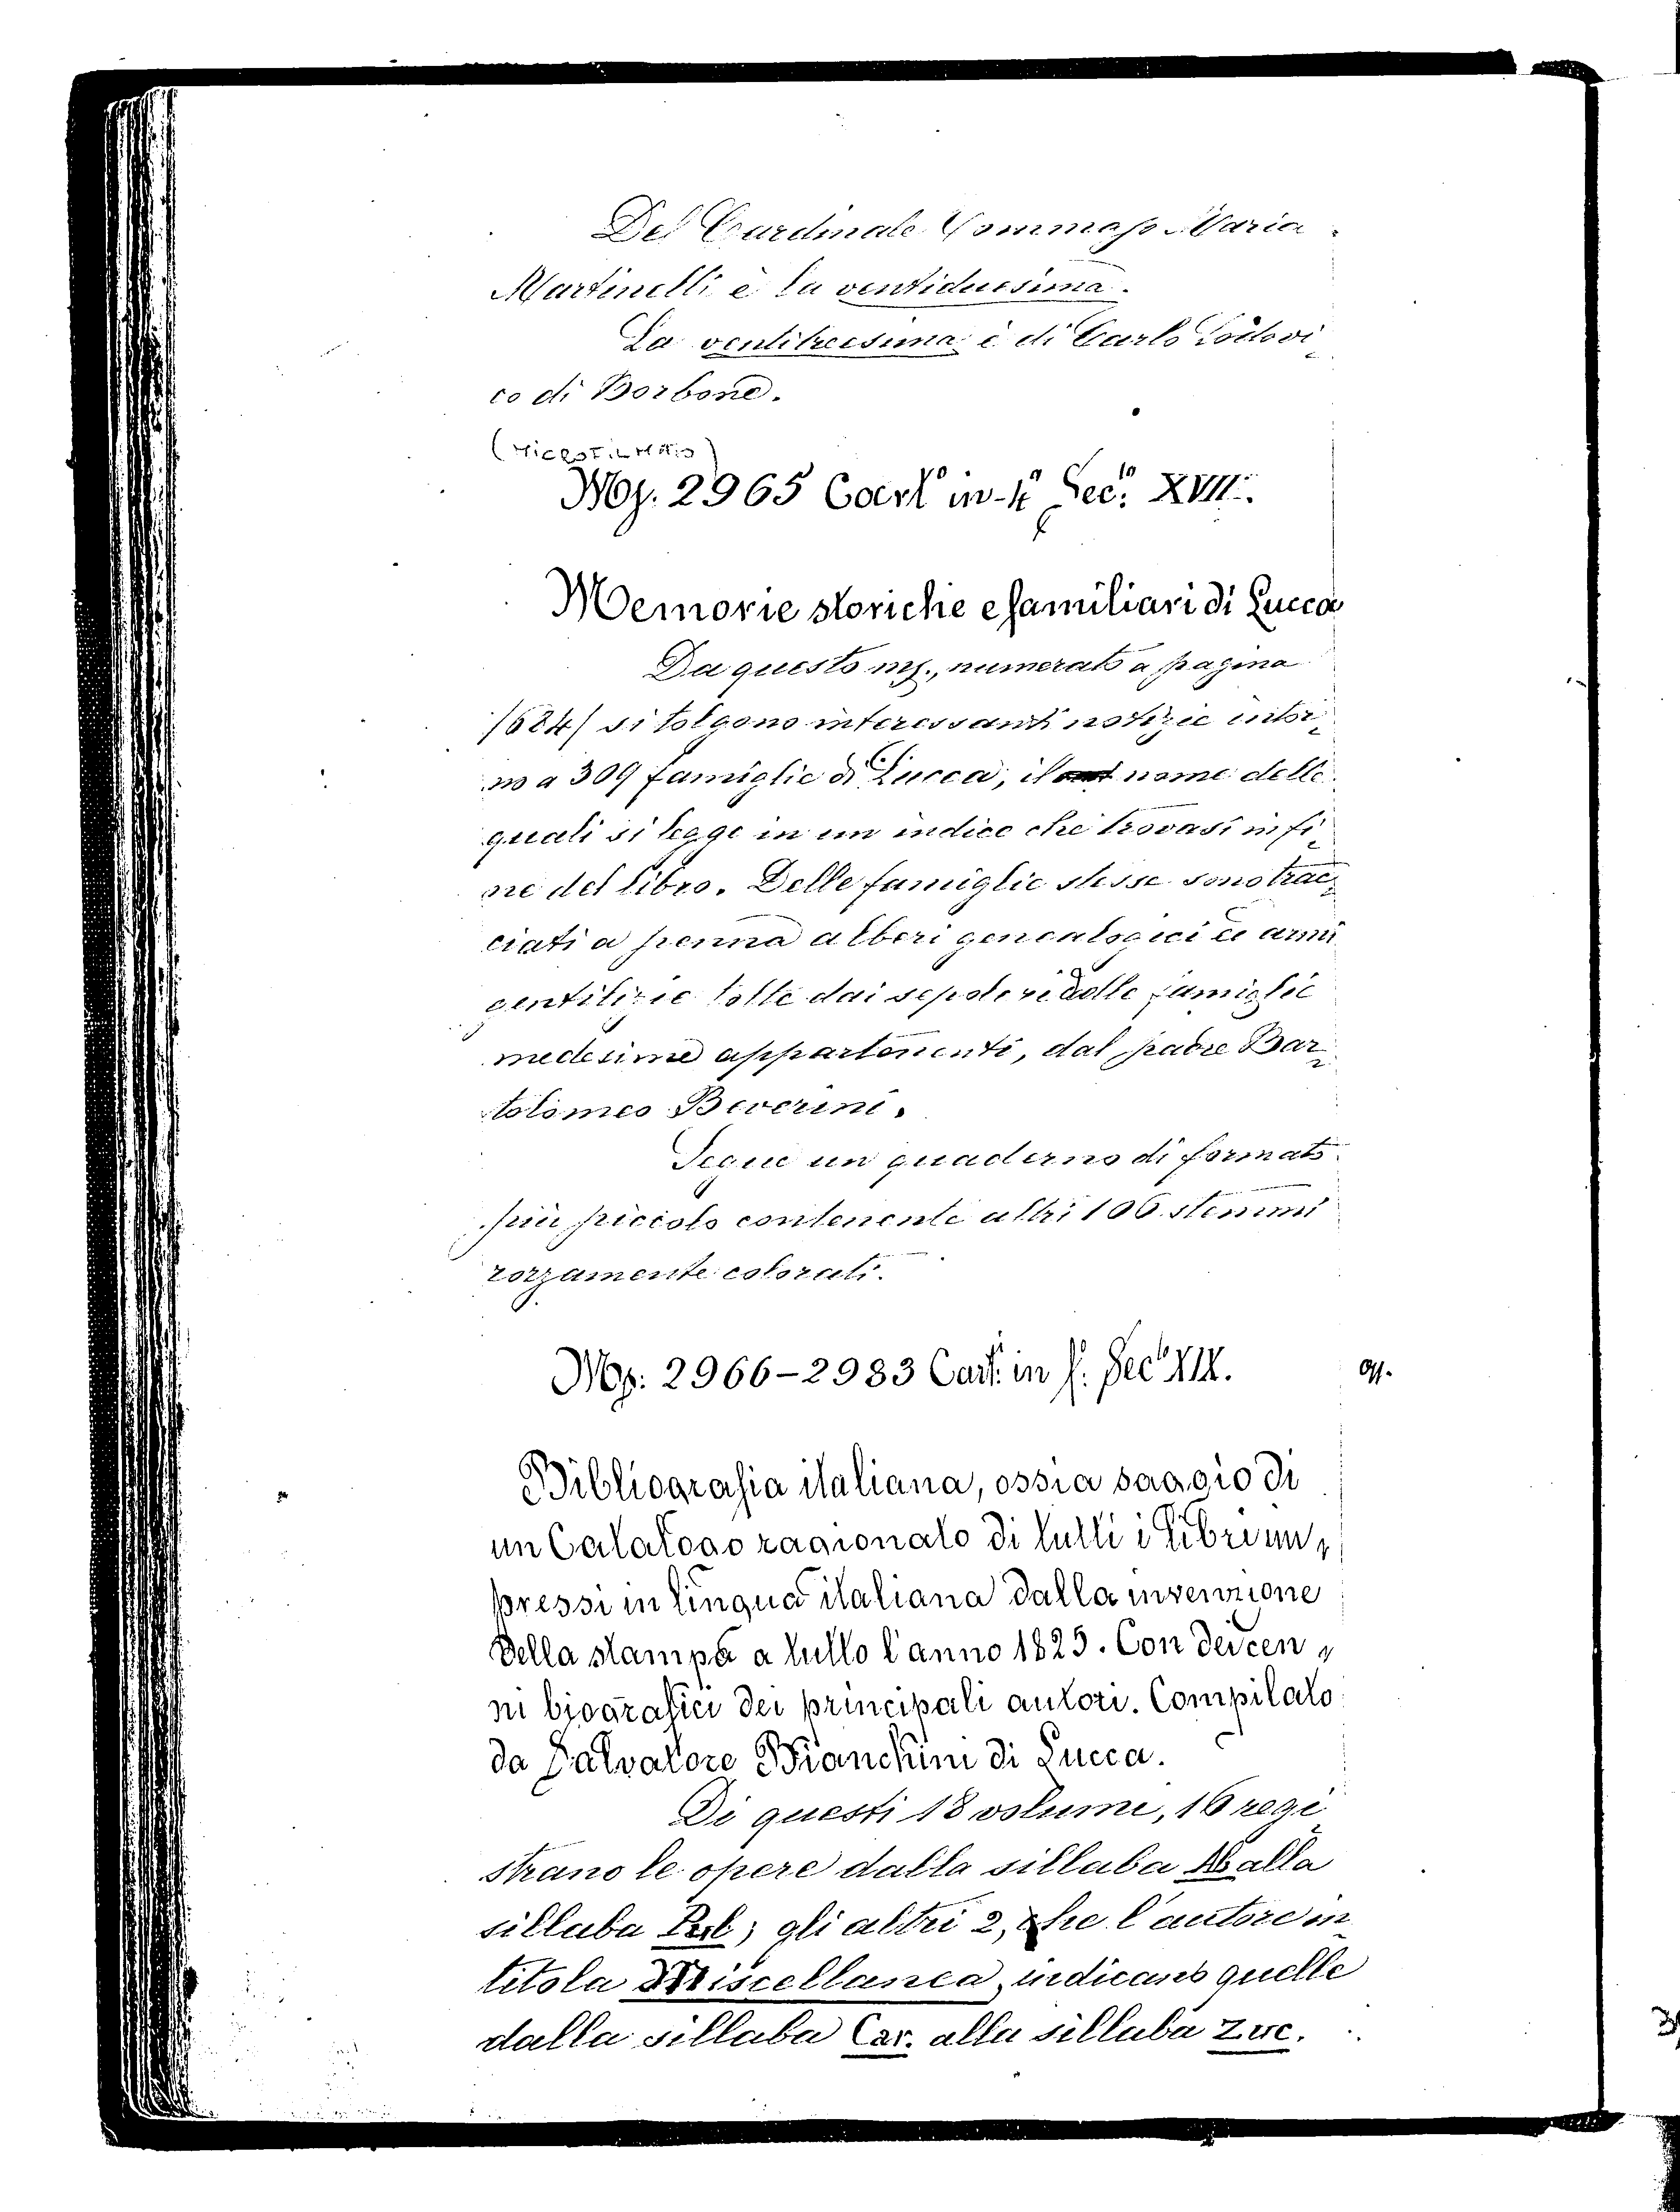 Del Cardinale Tommaso Maria
Martinelli è la ventiduesima.
La ventitreesima è di Carlo Lodovi
co di Borbone.
(Microfilmato)
Ms. 2965 Cart.º in-4º Sec.º XVII.
Memorie storiche e familiari di Lucca
Da questo ms., numerato a pagina
1684/ si tolgono interessanti notizie intor
no a 309 famiglie di Lucca, il nome delle
quali si legge in un indice che trovasi in fi
ne del libro. Delle famiglie stesse sono trac
ciati a penna alberi genealogici ed armi
gentilizie tolte dai sepolcri delle famiglie
medesime appartenenti, dal padre Bar
tolomeo Beverini.
Segue un quaderno di formato
più piccolo contenente altri 106 stemmi
rozzamente colorati.
Ms. 2966-2983 Cart. in f.º Sec.º XIX.
Bibliografia italiana, ossia saggio di
un Catalogo ragionato di tutti i libri im
pressi in lingua italiana dalla invenzione
della stampa a tutto l'anno 1825. Con dei cen
ni biografici dei principali autori. Compilato
da Salvatore Bianchini di Lucca.
Di questi 18 volumi, 16 regi
strano le opere dalla sillaba Ab alla
sillaba Pub; gli altri 2, che l'autore in
titola Miscellanea, indicano quelle
dalla sillaba Car. alla sillaba Zuc.